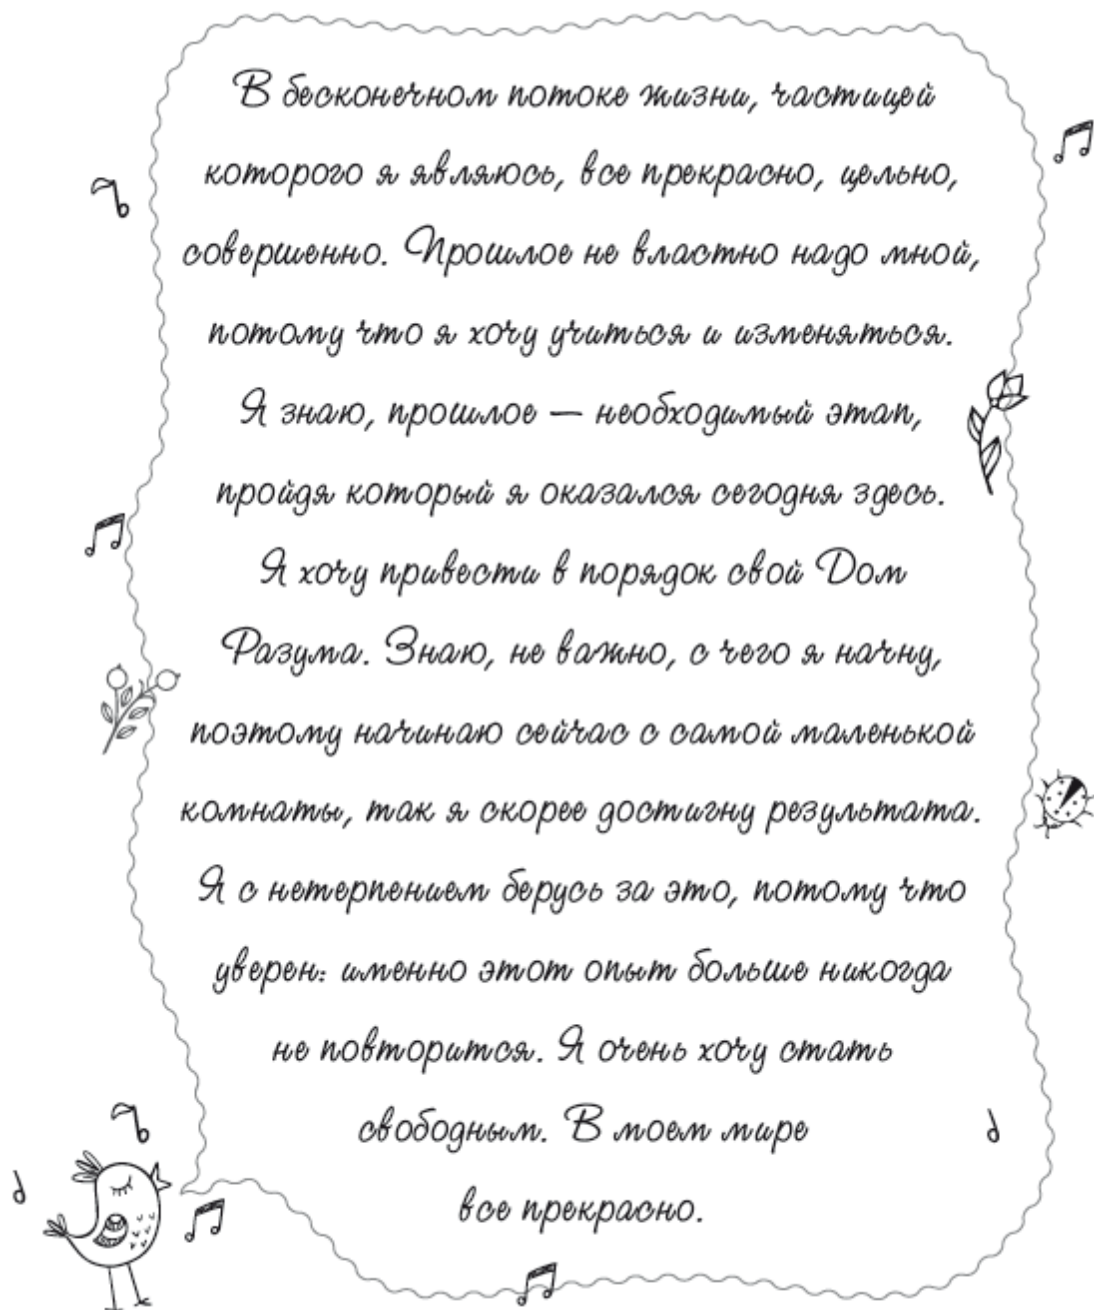 В бесконечном потоке жизни, частицей
которого я являюсь, все прекрасно, цельно,
совершенно. Прошлое не властно надо мной,
потому что я хочу учиться и изменяться.
Я знаю, прошлое — необходимый этап,
пройдя который я оказался сегодня здесь.
Я хочу привести в порядок свой Дом
Разума. Знаю, не важно, с чего я начну,
поэтому начинаю сейчас с самой маленькой
комнаты, так я скорее достигну результата.
Я с нетерпением берусь за это, потому что
уверен: именно этот опыт больше никогда
не повторится. Я очень хочу стать
свободным. В моем мире
все прекрасно.